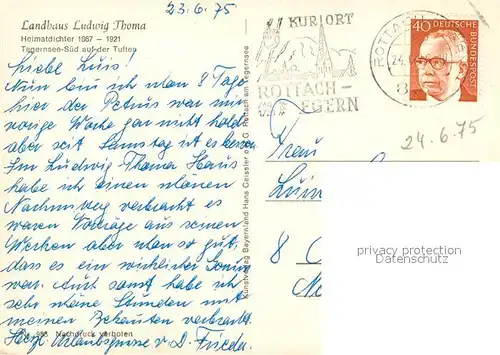 Landhaus Ludwig Thoma
Heimatdichter 1867 – 1921
Tegernsee-Süd auf der Tuften
23.6.75
KURORT
ROTTACH-
EGERN
ROTTACH
24.
8
40 DEUTSCHE
BUNDESPOST
24.6.75
Liebe Luis!
Nun bin ich schon 8 Tage
hier der Petrus war mir
vorige Woche gar nicht hold
aber seit Samstag ist es
Im Ludwig Thoma Haus
habe ich einen schönen
Nachmittag verbracht es
waren Vorträge aus seinen
Werken aber so gut,
dass es ein wirklicher Genuss
war. Auch sonst habe ich
sehr schöne Stunden mit
meinen Bekannten verbracht.
Herzl. Urlaubsgrüsse v. D. Frieda
Frau
8
Kunstverlag Bayernland Hans Geissler o.H.G. Rottach am Tegernsee
Nachdruck verboten
privacy protection